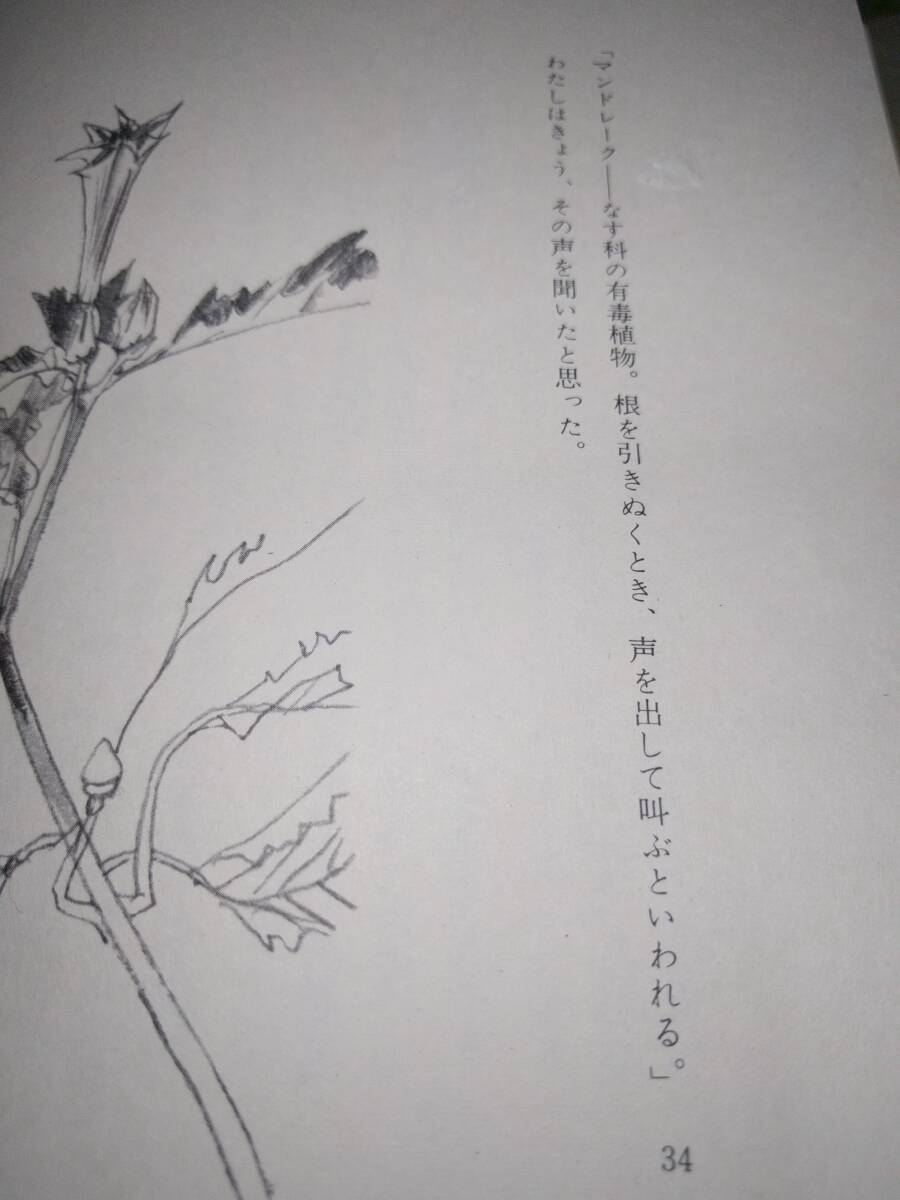 「マンドレーク――なす科の有毒植物。根を引きぬくとき、声を出して叫ぶといわれる。」
わたしはきょう、その声を聞いたと思った。
34